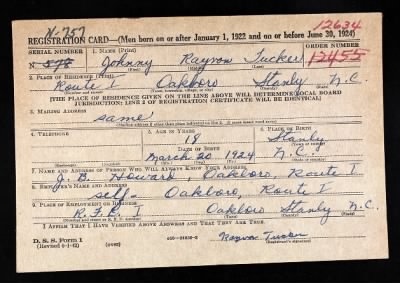 N-757
12634
REGISTRATION CARD—(Men born on or after January 1, 1922 and on or before June 30, 1924)
SERIAL NUMBER 1. NAME (Print) ORDER NUMBER
N 578 Johnny Rayvon Tucker 12455
(First) (Middle) (Last)
2. PLACE OF RESIDENCE (Print)
Route 1 Oakboro Stanly N.C.
[THE PLACE OF RESIDENCE GIVEN ON THE LINE ABOVE WILL DETERMINE LOCAL BOARD
JURISDICTION; LINE 2 OF REGISTRATION CERTIFICATE WILL BE IDENTICAL]
3. MAILING ADDRESS
same
4. TELEPHONE 5. AGE IN YEARS 6. PLACE OF BIRTH
18 Stanly
DATE OF BIRTH
March 20 1924 N.C.
7. NAME AND ADDRESS OF PERSON WHO WILL ALWAYS KNOW YOUR ADDRESS
Howard Oakboro, Route 1
8. EMPLOYER'S NAME AND ADDRESS
self Oakboro, Route 1
9. PLACE OF EMPLOYMENT OR BUSINESS
R.F.D. 1 Oakboro Stanly N.C.
I AFFIRM THAT I HAVE VERIFIED ABOVE ANSWERS AND THAT THEY ARE TRUE.
D. S. S. Form 1
(Revised 6-1-42) (over) Rayvon Tucker
(Registrant's signature)